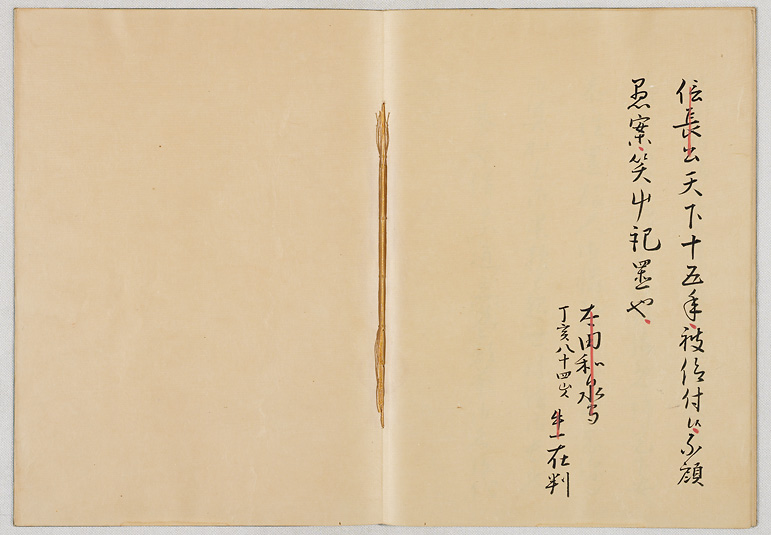 信長公天下十五年被仰付候不顧
愚案笑中記置也
太田和泉守
丁亥八十四歳
牛一在判